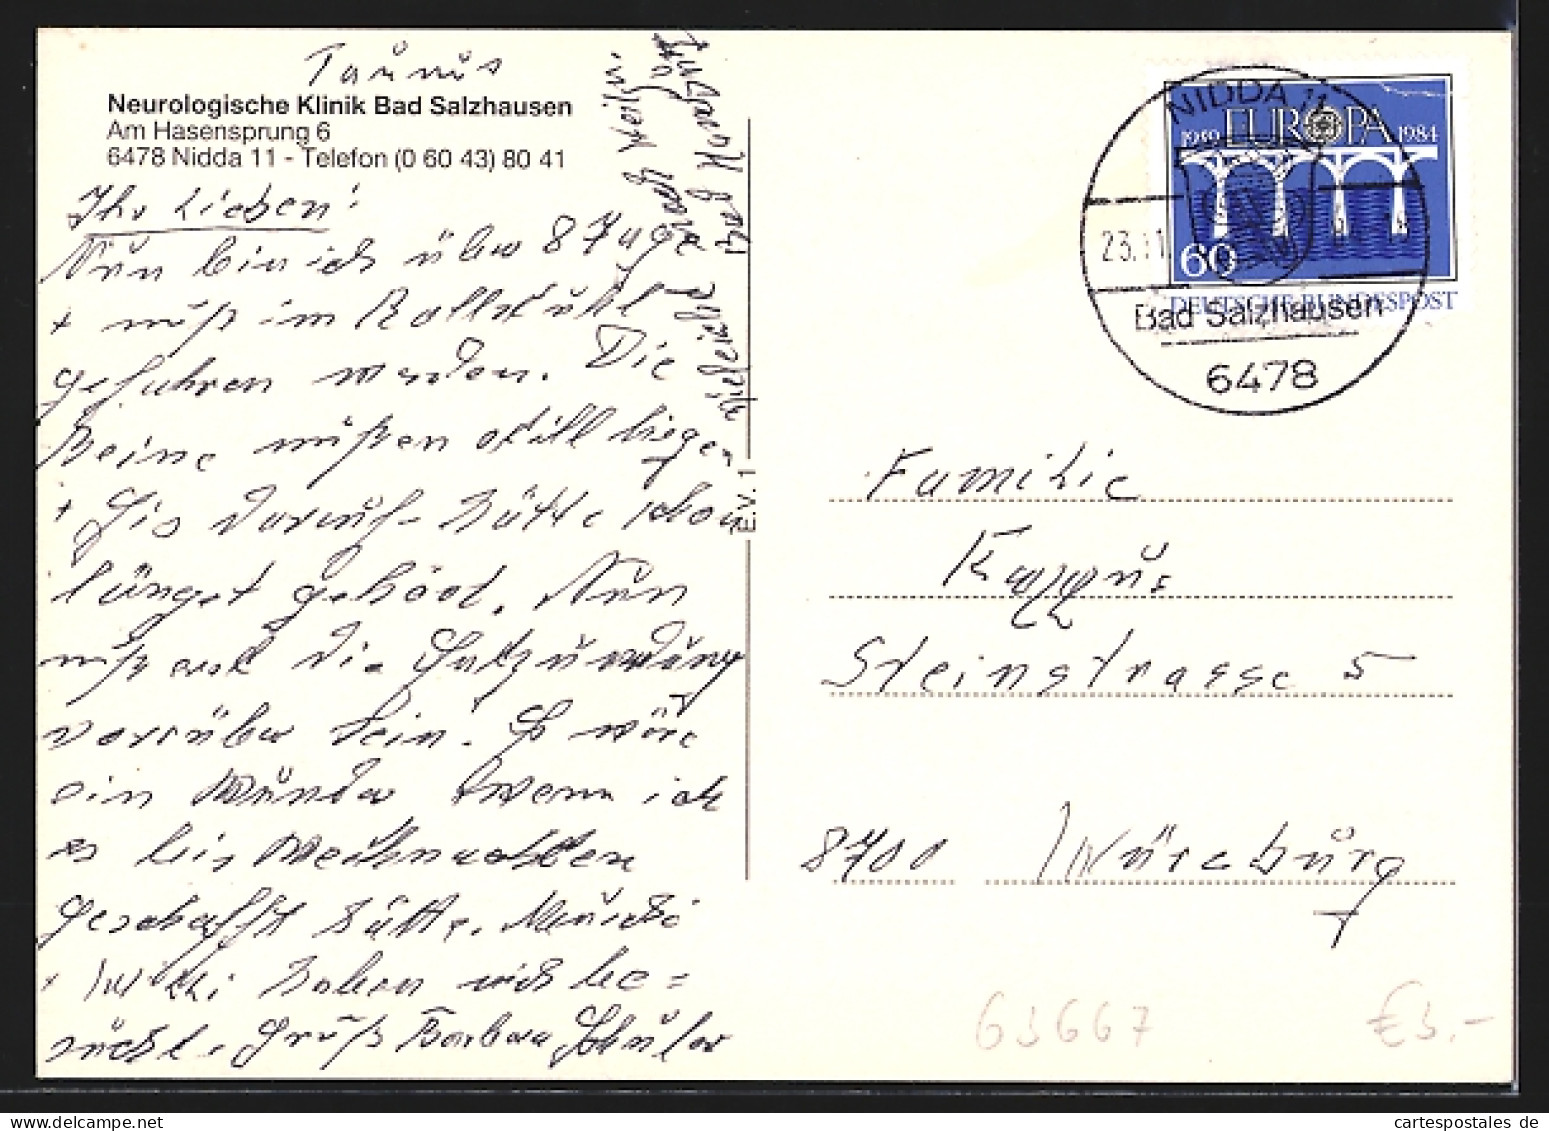 Taunus
Neurologische Klinik Bad Salzhausen
Am Hasensprung 6
6478 Nidda 11 - Telefon (0 60 43) 80 41
Ihr Lieben!
Nun bin ich über 8 Tage
+ muß im Rollstuhl
gefahren werden. Die
Beine müßen still liegen
+ Gis darauf. Hätte schon
längst gehört. Nun
muß erst die Entzündung
vorüber sein. Es wäre
ein Wunder wenn ich
es bis Weihnachten
geschafft hätte. Muschi
+ haben mich be=
sucht. Gruß Barbara Schüler
E.V. 1
NIDDA 11
23. 11.
Bad Salzhausen
6478
1959 EUROPA 1984
60
DEUTSCHE BUNDESPOST
Familie
Steinstrasse 5
8700 Würzburg
63667
€3.-
cartespostales de